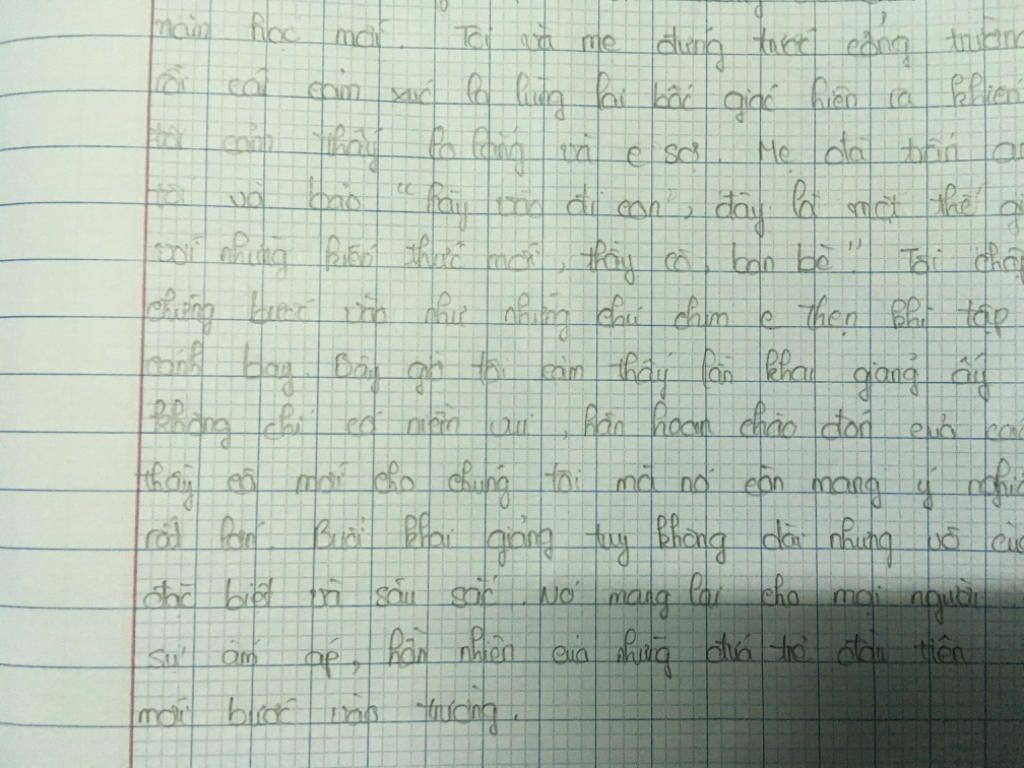 năm học mới. Tôi và mẹ đứng trước cổng trường
rồi cái cảm xúc lạ lùng lại bấc giác hiện ra khiến
tôi cảm thấy lo lắng và e sợ. Mẹ đã trấn
tôi và bảo "hãy vào đi con", đây là một thế
với những kiến thức mới, thầy cô, bạn bè" Tôi
chững bước vào như những chú chim e thẹn khi tập
cánh bay. Bây giờ tôi cảm thấy lần khai giảng ấy
không chỉ có niềm vui, hân hoan chào đón của các
thầy cô mới cho chúng tôi mà nó còn mang ý
rất lớn. Buổi khai giảng tuy không dài nhưng vô
đặc biệt và sâu sắc. Nó mang lại cho mọi người
sự ấm áp, hồn nhiên của những đứa trẻ đầu tiên
mới bước vào trường.